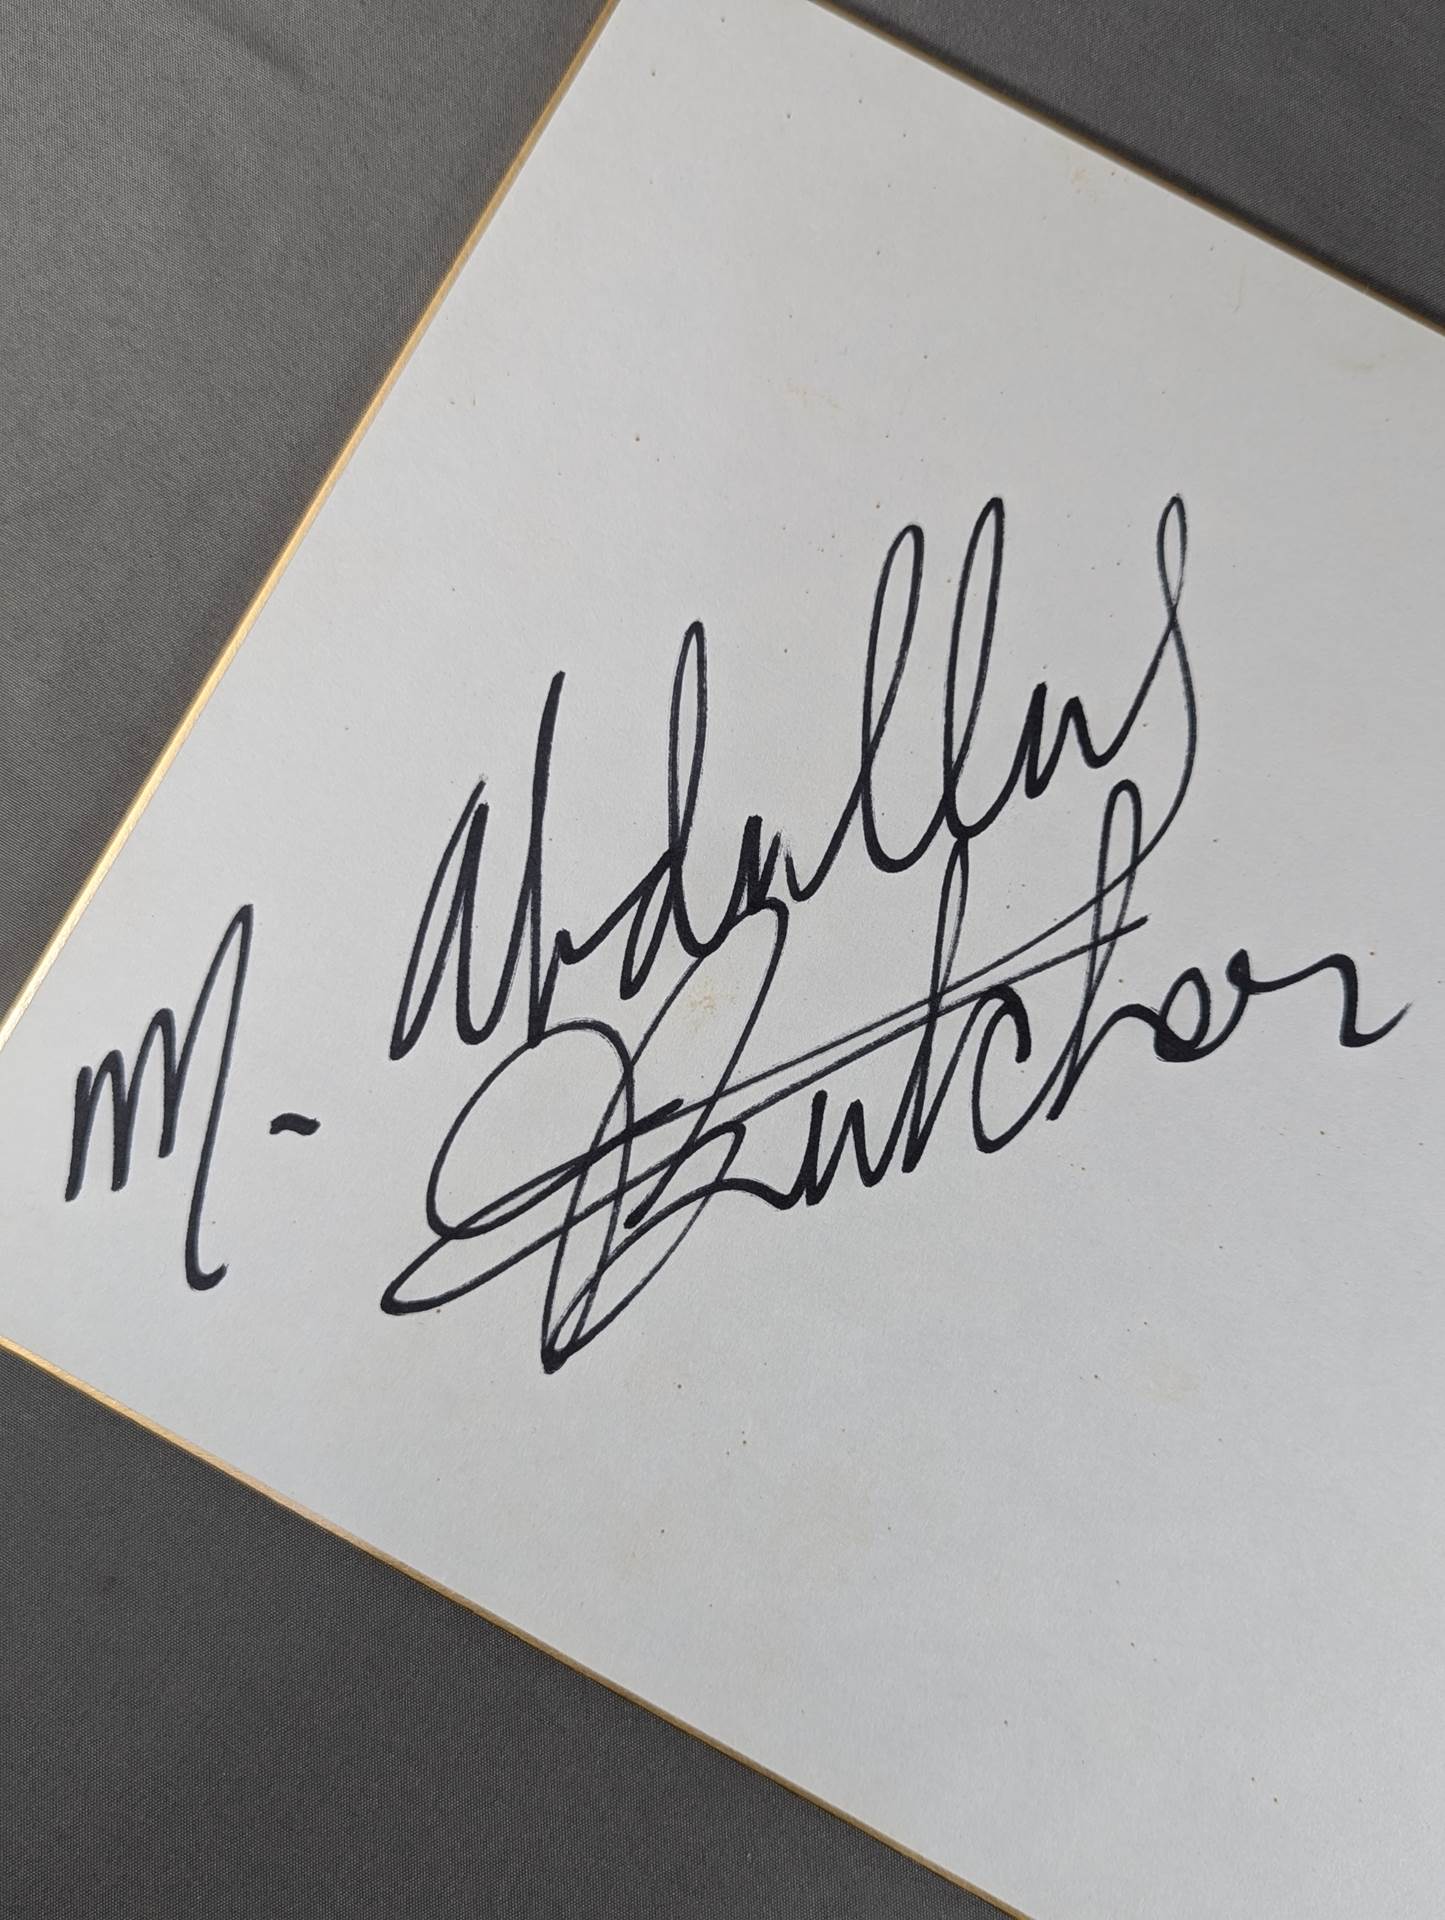 M. Abdullah
Butcher